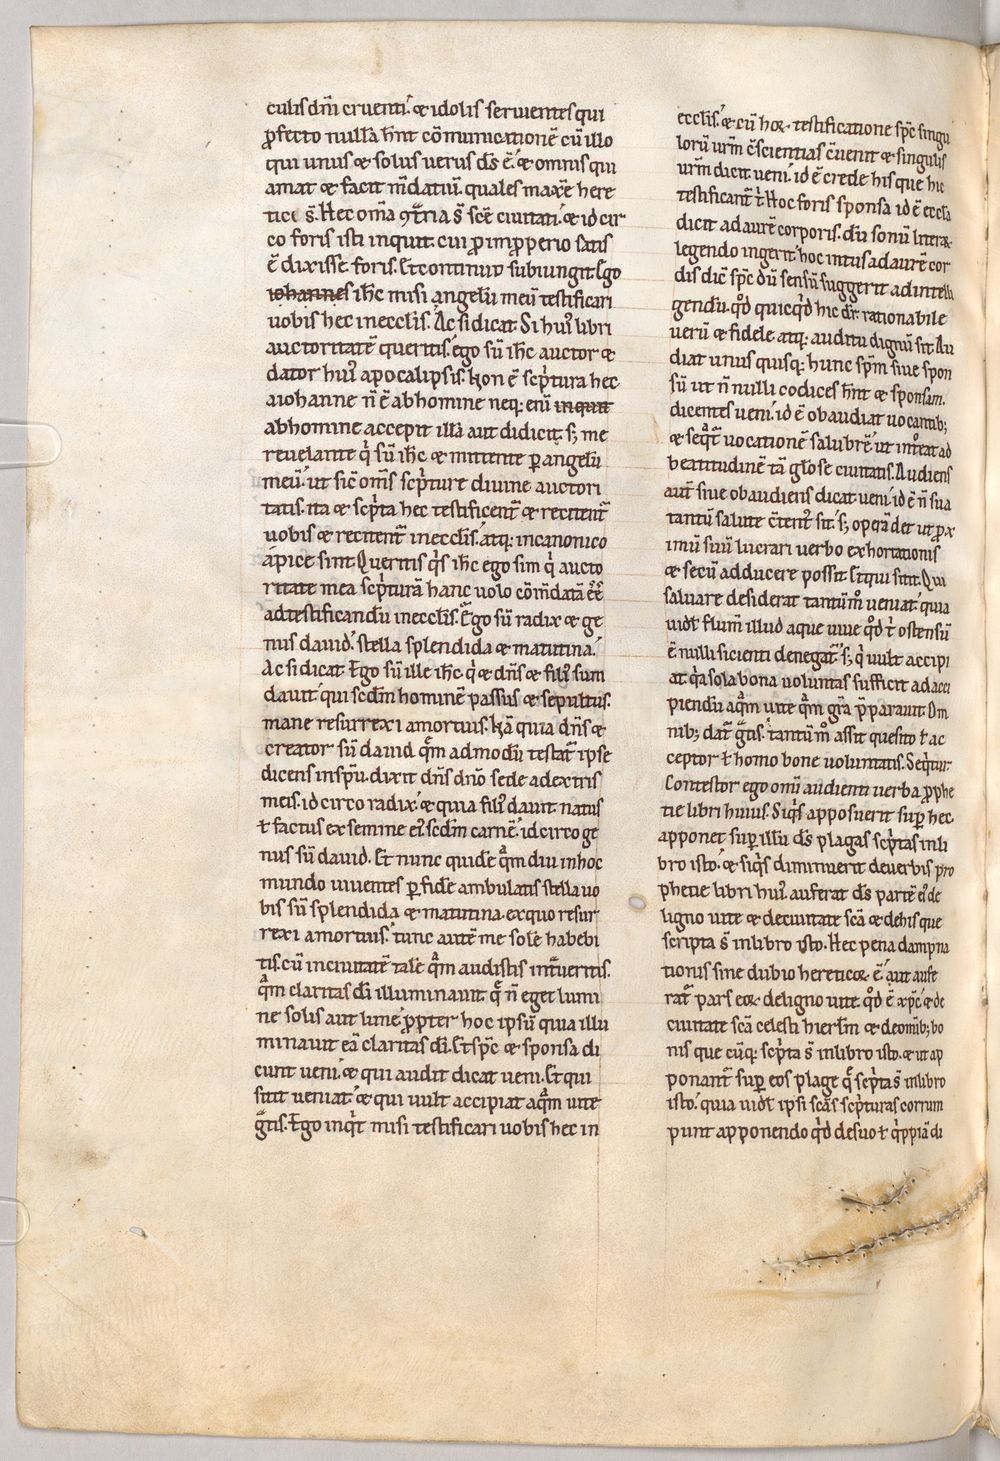 culis dñi cruenti. & idolis seruientes qui
ꝓfecto nullā hñt cōmunicationē cū illo
qui unus & solus uerus dš ē. & omnis qui
amat & facit m̄datiū. quales maxīe here
tici š. Hec om̄a ꝯtͣria š scē ciuitati. & id cir
co foris isti inquit. cui ꝓ imꝓperio satis
ē dixisse foris. Et continuo subiungit. Ego
iohannes ihc̄ misi angelū meū testificari
uobis hec in ecclis̄. Ac si dicat. Si huiꝰ libri
auctoritatē queritis. ego sū ihc̄ auctor &
dator huiꝰ apocalipsis. Non ē scͥptura hec
a iohanne n̄ ē ab homine neq; enī inquit
ab homine accepit illā aut didicit. s; me
reuelante qͥ sū ihc̄ & mittente ꝑ angelū
meū. ut sic̄ om̄s scͥpture diuine auctori
tatis. ita & scͥpta hec testificentͬ & recitentͬ
uobis & recitentͬ in ecclis̄. atq; in canonico
apice sint. Queritis qͥs ihc̄ ego sim qͥ aucto
ritate mea scͥpturā hanc uolo cōmdatā ēē
ad testificandū in ecclis̄. Ego sū radix & ge
nus dauid. stella splendida & matutina.
Ac si dicat. Ego sū ille ihc̄ qͥ & dn̄s & filiꝰ sum
dauit. qui scdm̄ hominē passus & sepultus.
mane resurrexi a mortuis. Nā quia dn̄s &
creator sū dauid qͣm admodū testatͬ ipse
dicens in spū. dixit dn̄s dnō sede a dextris
meis. id circo radix. & quia filiꝰ dauit natus
ł factus ex semine eiꝰ scdm̄ carnē. id circo ge
nus sū dauid. Et nunc quidē qͣm diu in hoc
mundo uiuentes ꝑ fidē ambulatis stella uo
bis sū splendida & matutina. ex quo resur
rexi a mortuis. tunc autē me solē habebi
tis. cū in ciuitatē talē qͣm audistis intͣueritis.
qͣm claritas dī illuminauit. qͣ n̄ eget lumi
ne solis aut lune. ꝓpter hoc ipsū quia illu
minauit eā claritas dī. Et spc̄ & sponsa di
cunt ueni. & qui audit dicat ueni. Et qui
sitit ueniat. & qui uult accipiat aqͣm uite
gͣtis. Ego inqͥt misi testificari uobis hec in
ecclis̄. & cū hoꝝ testificatione spc̄ singu
lorū ur̄m c̄scientias c̄uenit & singulis
ur̄m dicit ueni. id ē crede his que hic
testificantͬ. Hoc foris sponsa id ē eccła
dicit ad aurē corporis. dū sonū litteraꝝ
legendo ingerit. hoc intus ad aurē cor
dis dic̄ spc̄ dū sensū suggerit ad intelli
gendū. qͦd quicqͥd hic dr̄ rationabile
uerū & fidele atq; auditu dignū sit. Au
diat unus quisq; hunc spm̄ siue spon
sū ut n̄ nulli codices hn̄t & sponsam.
dicentes ueni. id ē obaudiat uocantib;
& seqͣtͬ uocationē salubrē. ut intͦeat ad
beatitudinē tā głose ciuitatis. Audiens
autͬ siue obaudiens dicat ueni. id ē n̄ sua
tantū salute c̄tentꝰ sit. s; operā det ut ꝓx
imū suū lucrari uerbo exhortationis
& secū adducere possit. Et qui sitit. Qui
saluare desiderat tantūmͦ ueniat. quia
uidͭ flum̄ illud aque uiue qͦd ł ostensū
ē nulli sicienti denegatͬ. s; qͥ uult accipi
at. qͥa sola bona uoluntas sufficit ad acci
piendū aqͣm uite qͣm grā p̄parauit. Om
nib; datͬ gͣtis. tantūmͦ assit quesitor ł ac
ceptor ł homo bone uoluntatis. Seqͥtur.
Contestor ego omī audienti uerba ꝓphe
tie libri huius. Si qͥs apposuerit suꝑ hec
apponet suꝑ illū dš plagas scͥptas in li
bro isto. & si qͥs diminuerit de uerbis pro
phetie libri huiꝰ. auferat dš partē eiꝰ de
ligno uite & de ciuitate scā & de his que
scripta š in libro isto. Hec pena dampna
tionis sine dubio hereticoꝝ ē. aut aufe
ratͬ pars eoꝝ de ligno uite qͦd ē xpc̄. & de
ciuitate scā celesti hierłm & de omīb; bo
nis que cūq; scͥpta š in libro isto. & ut ap
ponantͬ suꝑ eos plage qͣ scͥptas̄ in libro
isto. quia uidͭ ipsi scās scͥpturas corrum
punt apponendo qͦd de suo ł qͥppiā di